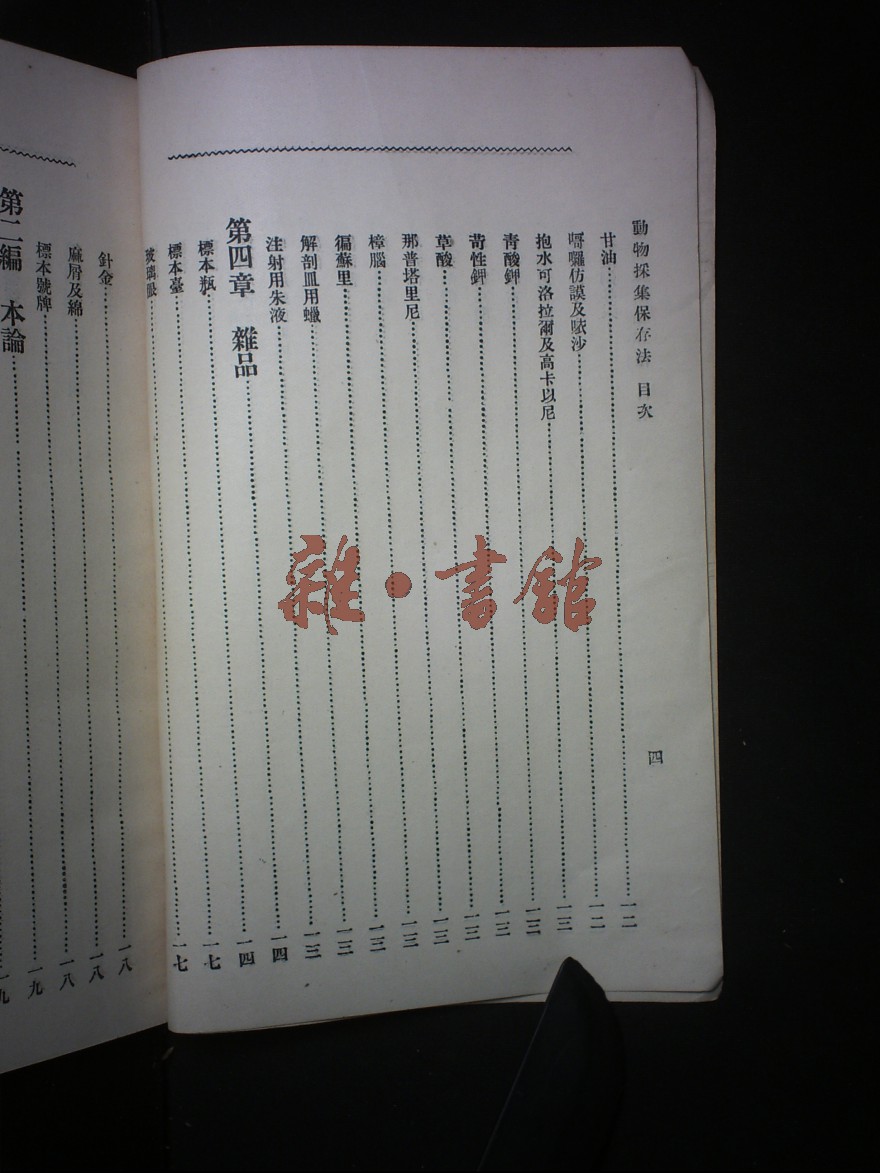 動物採集保存法 目次 四
甘油 一二
囉仿謨及 沙 一二
抱水可洛拉爾及高卡以尼 一三
青酸鉀 一三
苛性鉀 一三
草酸 一三
那普塔里尼 一三
樟腦 一三
徧蘇里 一三
解剖皿用蠟 一三
注射用朱液 一三
第四章 雜品 一四
標本瓶 一四
標本臺 一七
玻璃眼 一七
針金 一八
麻屑及綿 一八
標本號牌 一八
第二編 本論 一九
一九
雜·書館